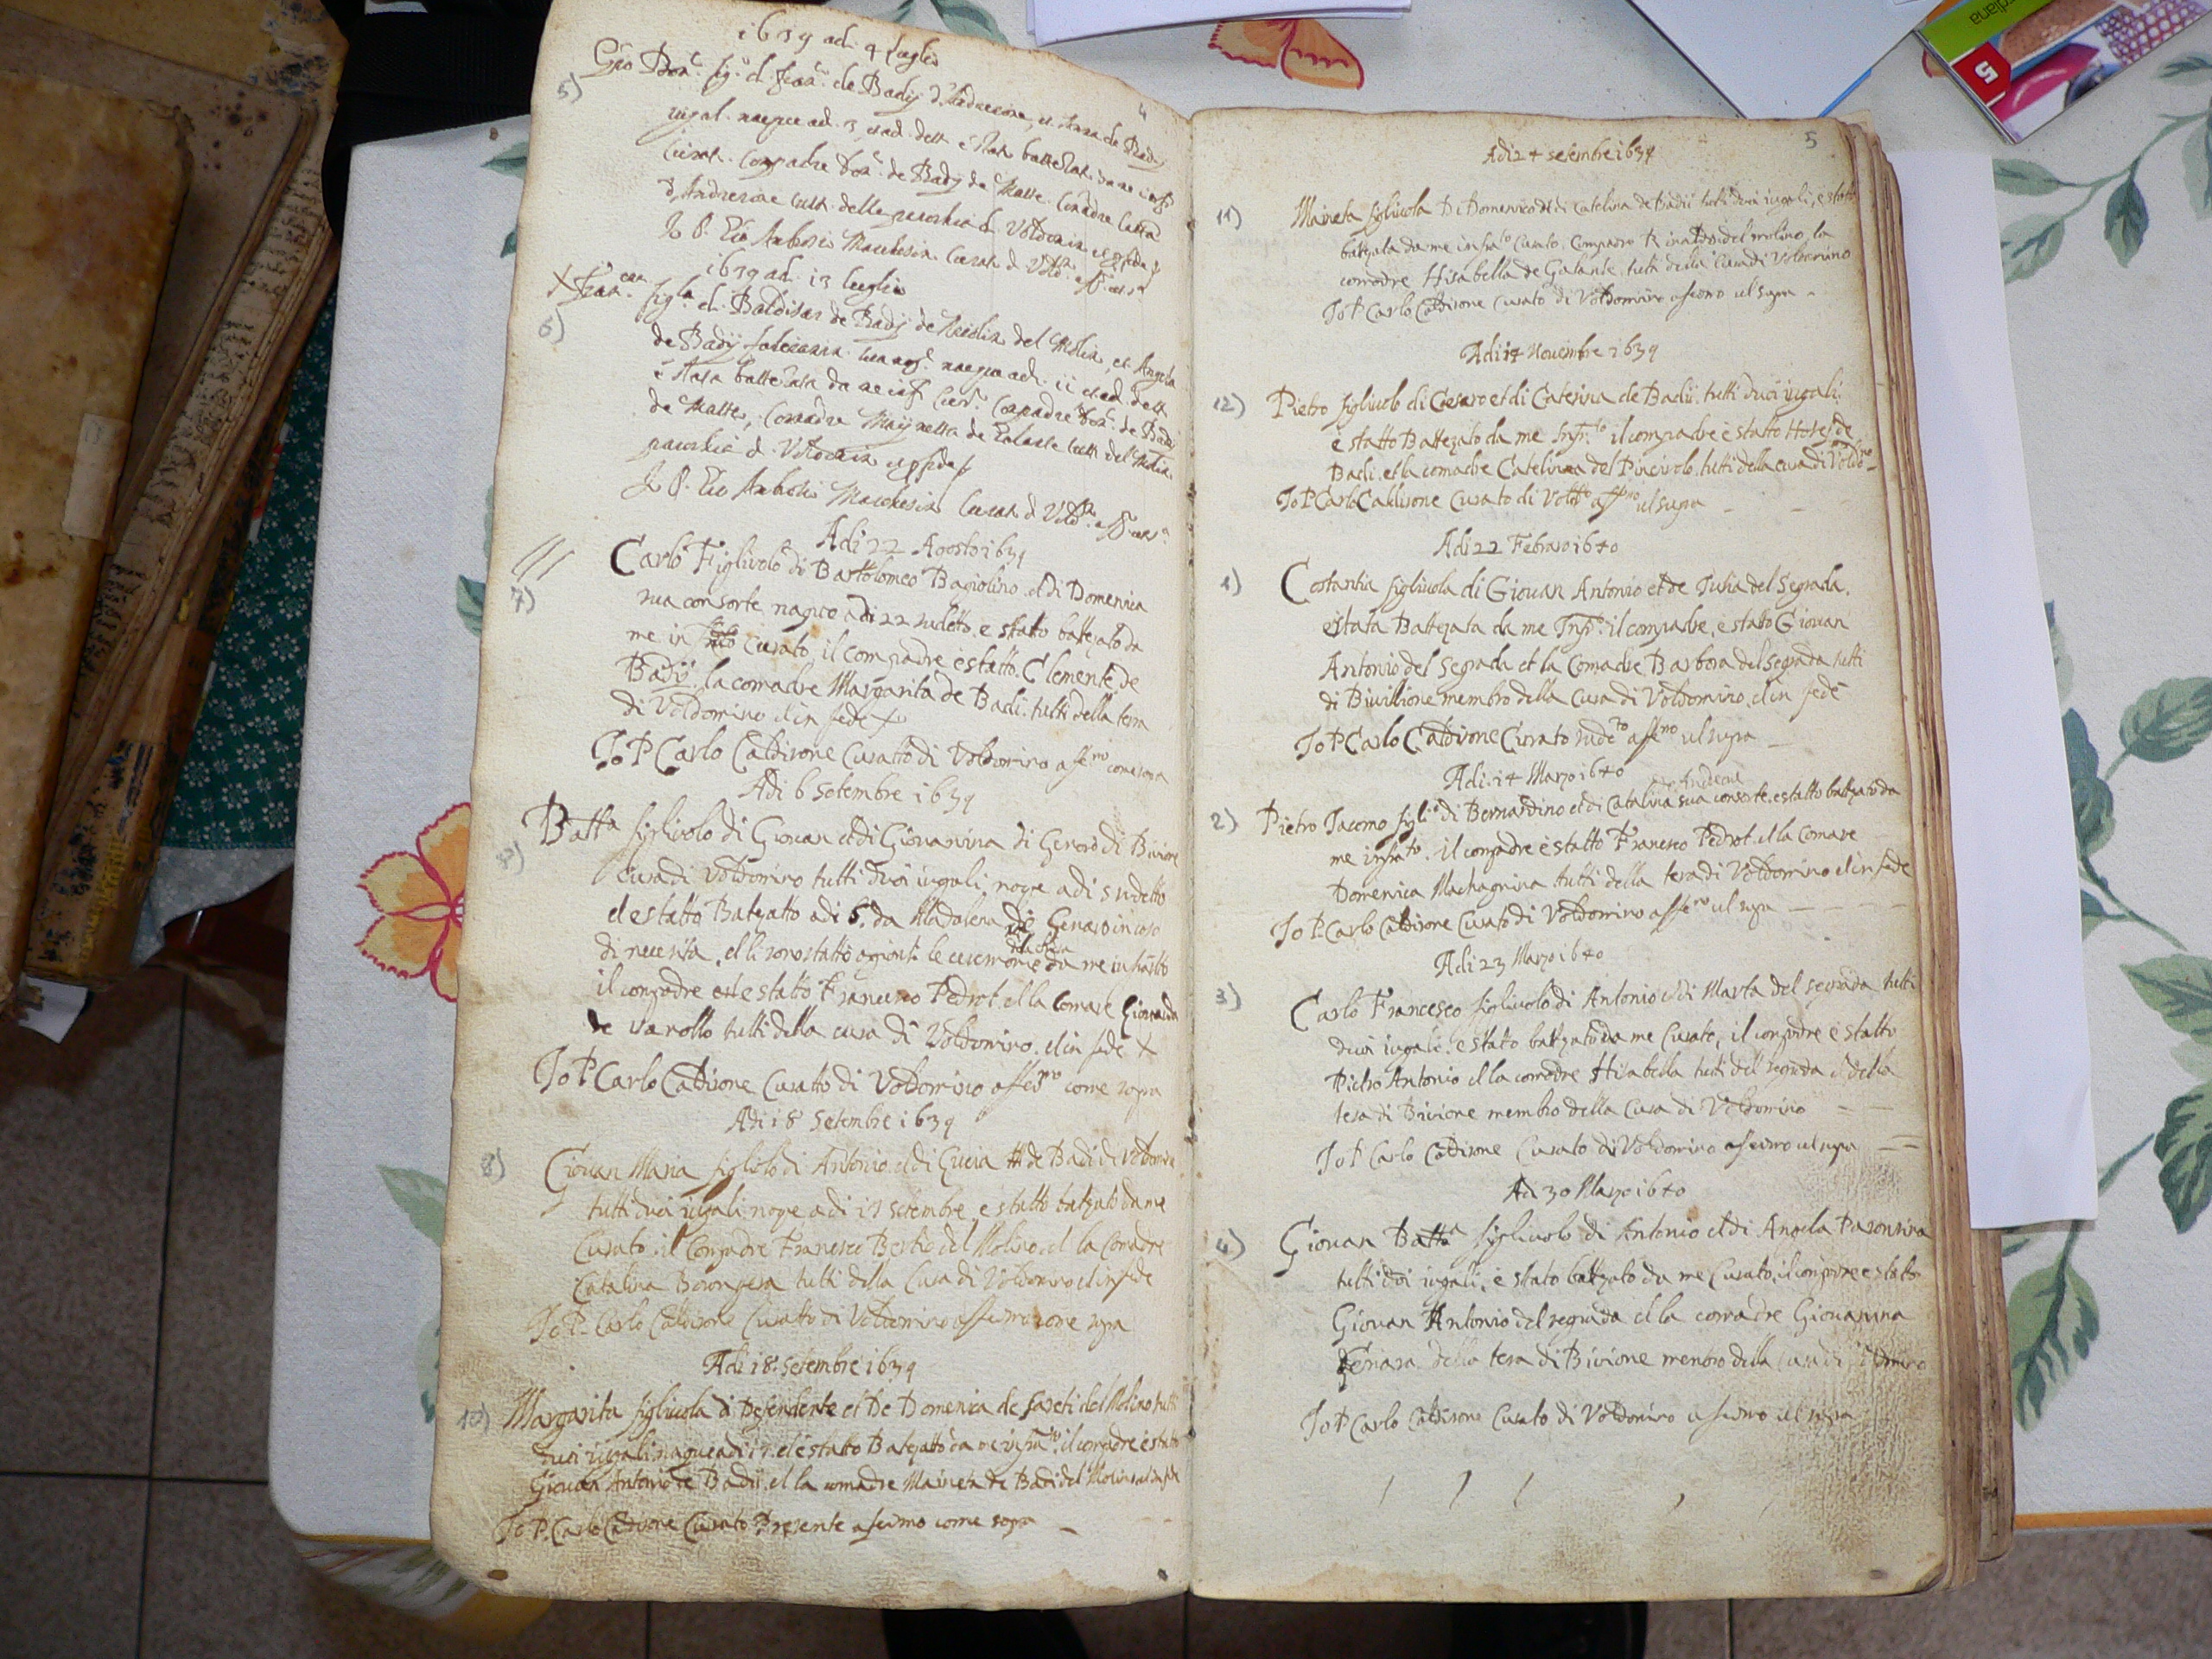 4
1639 ad. 4 luglio
5)
Gio Dom.co fig.o d. Fran.co de Badij d'Andreione, et Anna de Badij
iugal. nacque ad. 3, et ad. dett. è stat. battezat. da me infr.
Curat. Compadre Dom.co de Badij de Matte. Comadre Catta
d'Andreione tutt. della parochia d. Voldomin. et p fede
Io P. Gio Ambrosio Marchesin. Curat. d. Vold.
1639 ad. 13 luglio
6)
+ Fran.ca figl.a d. Baldisar de Badij de del Molin, et Angela
de Badij nacque ad. 11 et ad. dett.
è stata battezata da me inf. Cur. Compadre Dom.co de Badij
de Matte, Comadre Maijnetta de Galante tutt. del Molin
parochia d. Voldomin et p fede
Io P. Gio Ambrosio Marchesin Curat d Vold.
Adi 22 Agosto 1639
7)
Carlo Figliuolo di Bartolomeo Bagiolino et di Domenica
sua consorte naque adi 22 sudetto, e statto battezato da
me infr.to Curato, il compadre è statto Clemente de
Badij, la comadre Margarita de Badi, tutti della terra
di Voldomino et in fede
Io P Carlo Caldirone Curatto di Voldomino afermo come sopra
Adi 6 Setembre 1639
Batt.a figliuolo di Giovan et di Giovanina di Genaro di Bivione
Cura di Voldomino tutti duoi iugali, naque adi 5 sudetto
et e statto Batezatto adi 6, da Madalena de Genaro in caso
di necesita, et li sono statto agionte le ceremonie da me infratto
il compadre è statto Francesco Pedrot et la Comare Giovanina
de Varollo tutti della cura di Voldomino, et in fede
Io P Carlo Caldirone Curatto di Voldomino afermo come sopra
Adi 18 Setembre 1639
8)
Giovan Maria figliolo di Antonio et di Lucia de Badi di Voldomino
tutti duoi iugali naque adi 17 Setembre, e statto batezato da me
Curato, il Compadre Francesco Bestio del Molino et la Comadre
Catalina tutti della Cura di Voldomino et in fede
Io P. Carlo Caldirone Curatto di Voldomino afermo come sopra
Adi 18 Setembre 1639
10)
Margarita figliuola di Defendente et De Domenica de del Molino tutti
duoi iugali naque adi 17 et è statto Batezatto da me infra.to, il compadre è statto
Giovan Antonio de Badij, et la comadre Maineta de Badi del Molino et in fede
Io P. Carlo Caldirone Curato Presente afermo come sopra
5
Adi 24 setembre 1639
11)
Maineta figliuola Di Domenico et di Catelina de Badii tutti duoi iugali, è stata
batezata da me infra.to Curato. Compadre del molino, la
comadre Hisabella de Galante, tutti della Cura di Voldomino
Io P Carlo Caldirone Curato di Voldomino afermo ut supra
Adi 14 Novembre 1639
12)
Pietro figliuolo di Cesaro et di Caterina de Badii tutti duoi iugali,
è statto Battezato da me Infr.to il compadre è statto de
Badi, et la comadre Catelina del Pincirolo, tutti della cura di Voldo.no
Io P Carlo Caldirone Curato di Voldo.no aff.mo ut supra
Adi 22 Febraro 1640
1)
Costantia figliuola di Giovan Antonio et de Iulia del Segrada,
è stata Battezata da me Infr.to il compadre, è statto Giovan
Antonio del Segrada et la Comadre Barbora del Segrada tutti
di Bivillione membro della Cura di Voldomino, et in fede
Io P Carlo Caldirone Curato sude.to afe.mo ut supra
Adi 14 Marzo 1640
2)
Pietro Iacomo figli.o di Bernardino et di Catalina sua consorte, e statto batezato da
me infra.to, il compadre è statto Francesco Pedrot et la Comare
Domenica Machagnina tutti della tera di Voldomino et in fede
Io P. Carlo Caldirone Curato di Voldomino affe.mo ut supra
Adi 23 Marzo 1640
3)
Carlo Francesco figliuolo di Antonio et di Marta del segrada tutti
duoi iugali, è stato batezato da me Curato, il compadre è statto
Pietro Antonio et la comadre Hisabella tutti del segrada et della
tera di Bivione membro della Cura di Voldomino
Io P Carlo Caldirone Curato di Voldomino afermo ut supra
Adi 30 Marzo 1640
4)
Giovan Batta figliuolo di Antonio et di Angela Paronzina
tutti doi iugali, è stato batezato da me Curato, il compadre e stato
Giovan Antonio del segrada et la comadre Giovanina
della tera di Bivione membro della Cura di Voldomino
Io P Carlo Caldirone Curato di Voldomino afermo ut supra